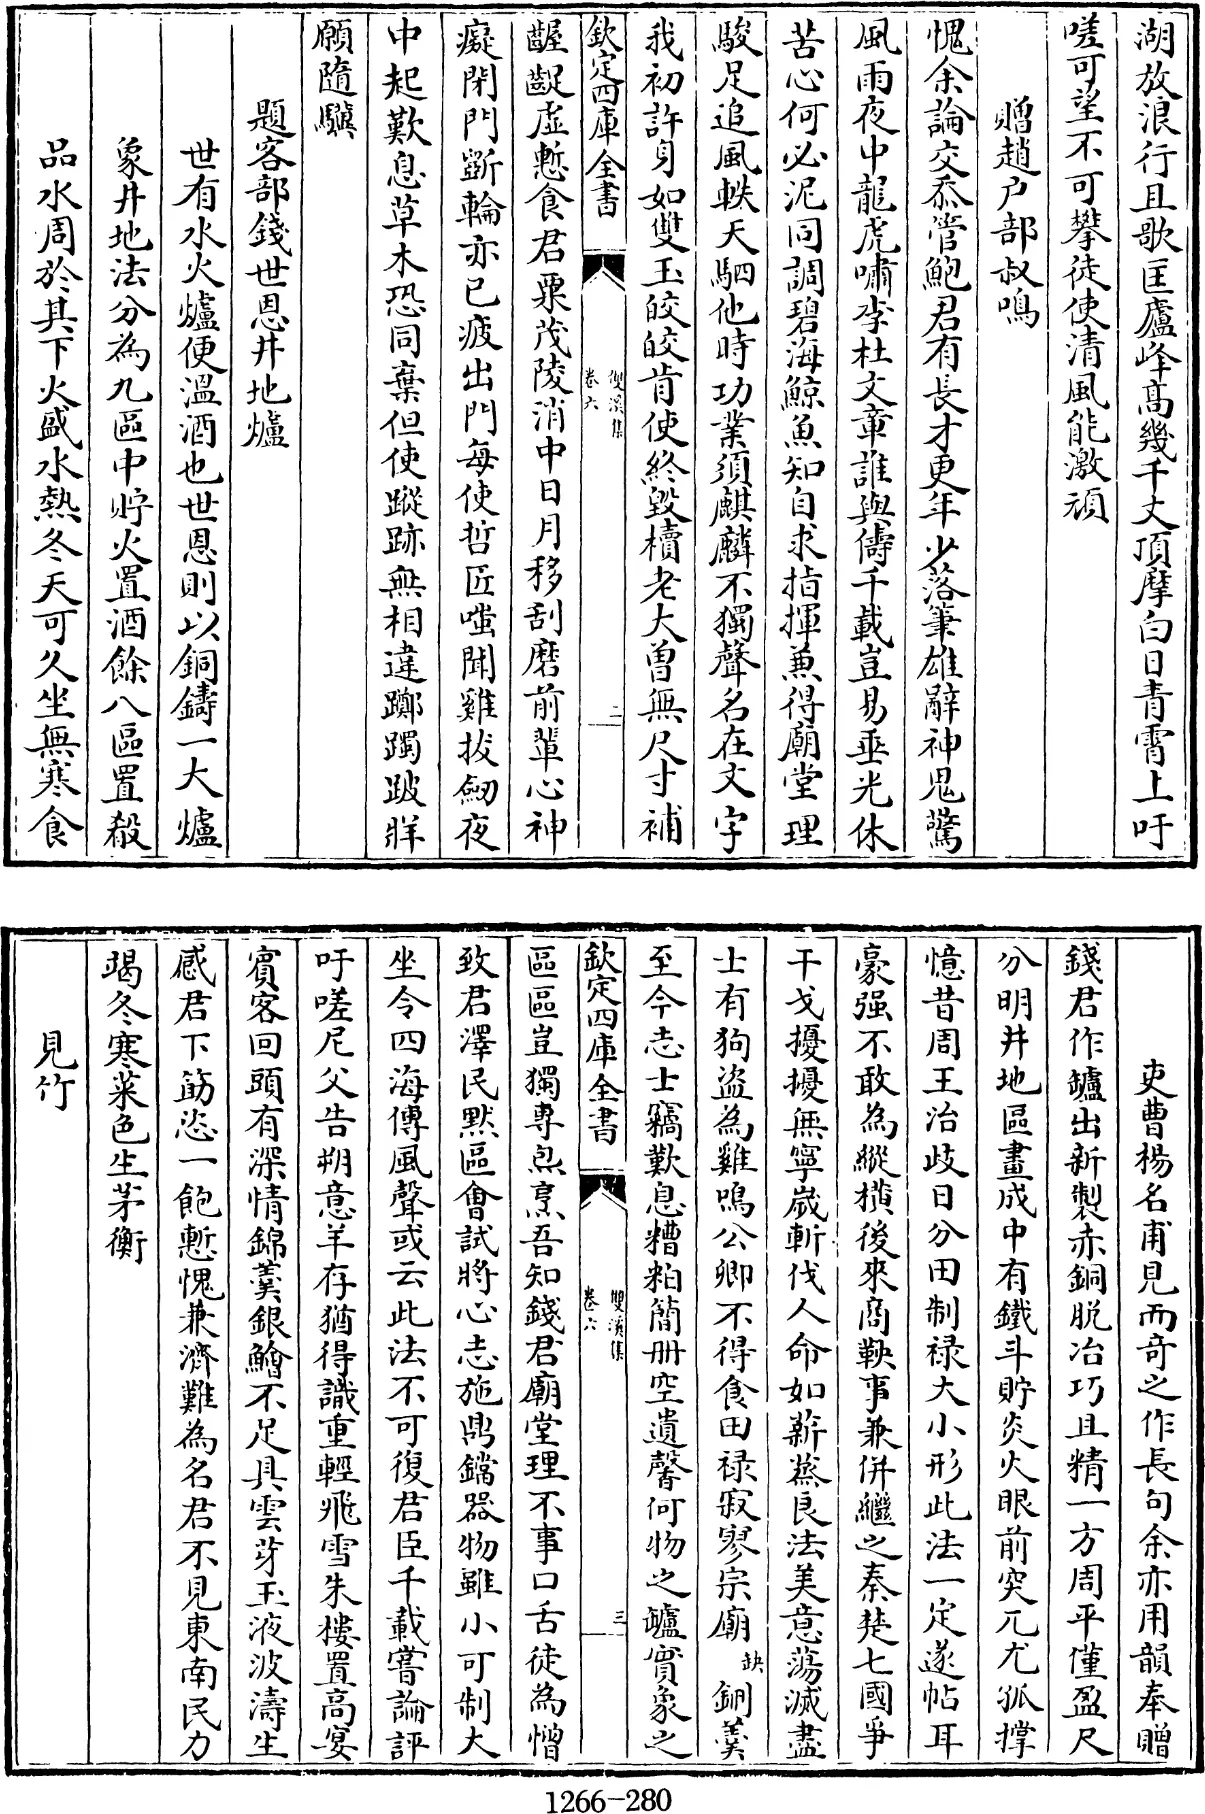 湖放浪行且歌匡廬峰高幾千丈頂摩白日青霄上吁
嗟可望不可攀徒使清風能激頑
贈趙户部叔鳴
愧余論交忝管鮑君有長才更年少落筆雄辭神鬼驚
風雨夜中龍虎嘯李杜文章誰與儔千載豈易垂光休
苦心何必泥同調碧海鯨魚知自求指揮兼得廟堂理
駿足追風軼天駟他時功業須麒麟不獨聲名在文字
我初許身如雙玉皎皎肯使終毀櫝老大曽無尺寸補
欽定四庫全書
雙溪集
卷六
二
齷齪虚慙食君粟茂陵消中日月移刮磨前輩心神
癡閉門斵輪亦已疲出門每使哲匠嗤聞雞拔劔夜
中起歎息草木恐同棄但使蹤跡無相違躑躅跛牂
願隨驥
題客部錢世恩井地爐
世有水火爐便溫酒也世恩則以銅鑄一大爐
象井地法分為九區中貯火置酒餘八區置殽
品水周於其下火盛水熱冬天可久坐無寒食
吏曹楊名甫見而奇之作長句余亦用韻奉贈
錢君作鑪出新製赤銅脱冶巧且精一方周平僅盈尺
分明井地區畫成中有鐵斗貯炎火眼前突兀尤孤撑
憶昔周王治歧日分田制禄大小形此法一定遂帖耳
豪强不敢為縱横後來商鞅事兼併繼之秦楚七國爭
干戈擾擾無寧嵗斬伐人命如薪蒸良法美意蕩滅盡
士有狗盗為雞鳴公卿不得食田禄寂寥宗廟缺鉶羮
至今志士竊歎息糟粕簡冊空遺馨何物之鑪實象之
欽定四庫全書
雙溪集
卷六
三
區區豈獨專炰烹吾知錢君廟堂理不事口舌徒為憎
致君澤民黙區會試將心志施鼎鐺器物雖小可制大
坐令四海傳風聲或云此法不可復君臣千載嘗論評
吁嗟尼父告朔意羊存猶得識重輕飛雪朱樓置高宴
賓客回頭有深情錦羮銀鱠不足具雲芽玉液波濤生
感君下筯恣一飽慙愧兼濟難為名君不見東南民力
竭冬寒菜色生茅衡
見竹
1266-280